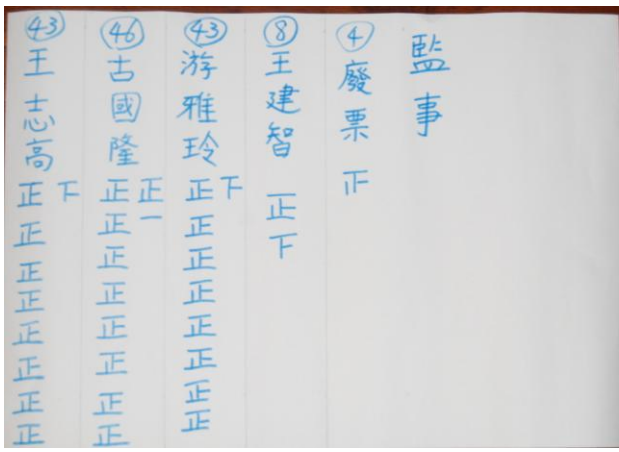 監事
④廢票
⑧王建智正下
㊸游雅玲正正正正正正正正
下
㊻古國隆正正正正正正正正
正一
㊸王志高正正正正正正正正
下